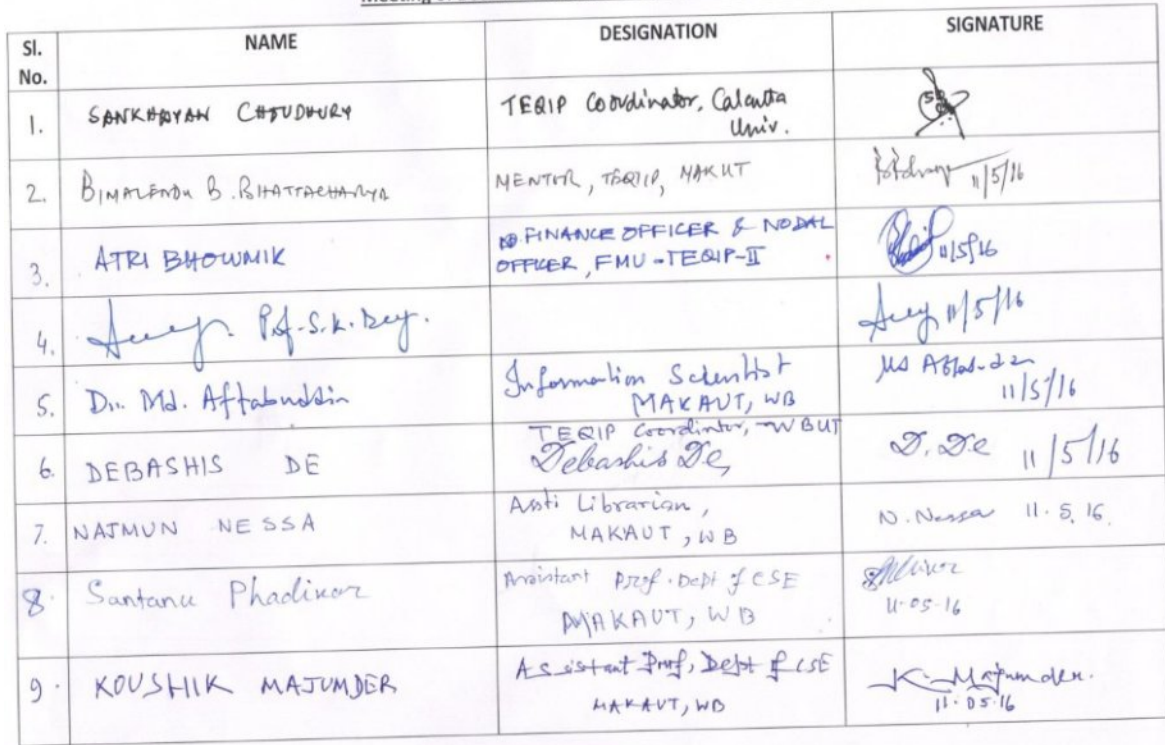 Meeting
Sl. No. NAME DESIGNATION SIGNATURE
1. SANKHAYAN CHOUDHURY TEQIP Coordinator, Calcutta
Univ.
2. BIMALENDU B. BHATTACHARYA MENTOR, TEQIP, MAKUT 11/5/16
3. ATRI BHOWMIK FINANCE OFFICER & NODAL
OFFICER, FMU-TEQIP-II 11/5/16
4. Prof. S.K. Dey. 11/5/16
5. Dr. Md. Aftabuddin Information Scientist
MAKAUT, WB 11/5/16
6. DEBASHIS DE TEQIP Coordintor, WBUT
Debashis De, D. De 11/5/16
7. NAJMUN NESSA Asst. Librarian,
MAKAUT, WB N. Nessa 11.5.16
8. Santanu Phadikar Assistant Prof. Dept of CSE
MAKAUT, WB 11-05-16
9. KOUSHIK MAJUMDER Assistant Prof, Dept of CSE
MAKAUT, WB K. Majumder.
11.05.16